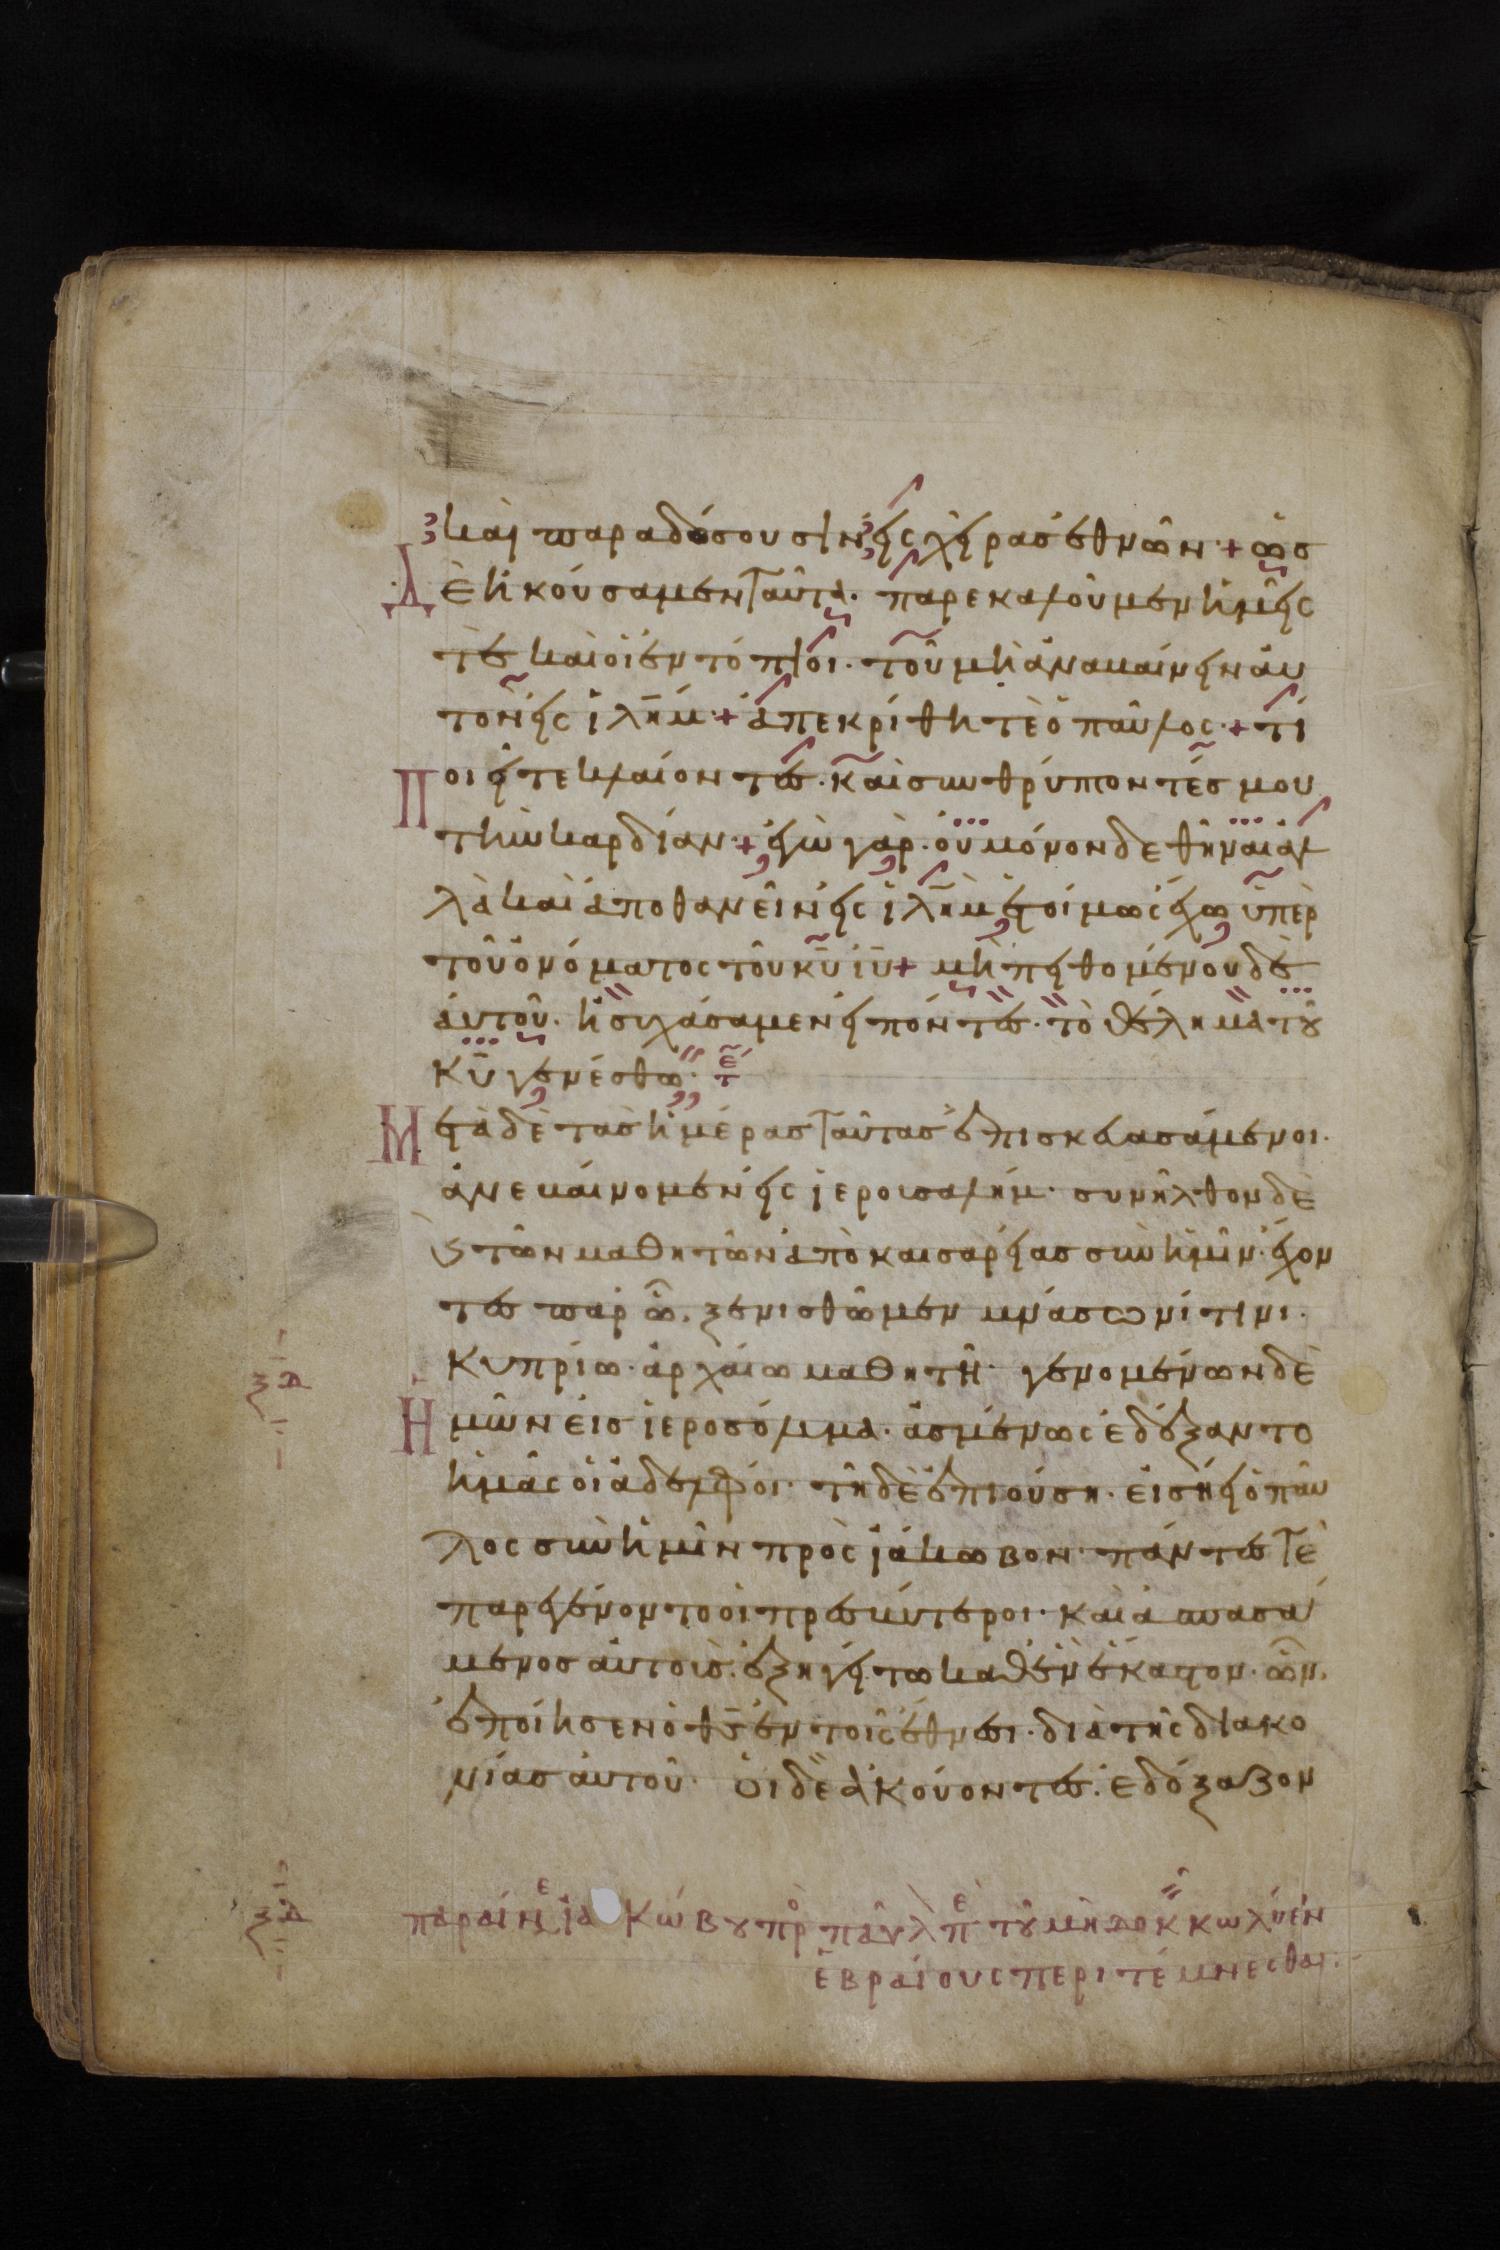 καὶ παραδώσουσιν εἰς χεῖρας ἐθνῶν + ὡς
δὲ ἠκούσαμεν ταῦτα· παρεκαλοῦμεν ἡμεῖς
τε καὶ οἱ ἐντόπιοι· τοῦ μὴ ἀναβαίνειν αὐ
τὸν εἰς ἱλημ + ἀπεκρίθη τὲ ὁ παῦλος + τί
ποιεῖτε κλαίοντες· καὶ συνθρύπτοντές μου
τὴν καρδίαν + ἐγὼ γὰρ· οὐ μόνον δεθῆναι ἀλ
λὰ καὶ ἀποθανεῖν εἰς ἱλημ ἑτοίμως ἔχω ὑπὲρ
τοῦ ὀνόματος τοῦ κυ ιυ + μὴ πειθομένου δὲ
αὐτοῦ· ἡσυχάσαμεν εἰπόντες· τὸ θέλημα τοῦ
κυ γενέσθω· τε
Μετὰ δὲ τὰς ἡμέρας ταύτας ἐπισκευασάμενοι·
ἀνεβαίνομεν εἰς ἱερουσαλήμ· συνῆλθον δὲ
καὶ τῶν μαθητῶν ἀπὸ καισαρείας σὺν ἡμῖν· ἄγον
τες παρ' ᾧ· ξενισθῶμεν μνάσωνί τινι·
κυπρίω· ἀρχαίω μαθητῆ· γενομένων δὲ
ἡμῶν εἰς ἱεροσόλυμα· ἀσμένως ἐδέξαντο
ἡμᾶς οἱ ἀδελφοί· τῆ δὲ ἐπιούση· εἰσήει ὁ παῦ
λος σὺν ἡμῖν πρὸς ἰάκωβον· πάντες τὲ
παρεγένοντο οἱ πρεσβύτεροι· καὶ ἀσπασά
μενος αὐτοὺς· ἐξηγεῖτο καθ' ἓν ἕκαστον· ὧν
ἐποίησεν ὁ θς ἐν τοῖς ἔθνεσι· διὰ τῆς διακο
νίας αὐτοῦ· οἱ δὲ ἀκούοντες· ἐδόξαζον
ξδ
ξδ
παραίνε ἰακώβου πρ παῦλ π τοῦ μὴ δοκ κωλύειν
ἑβραίους περιτέμνεσθαι·